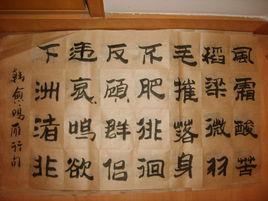 風霜酸苦
稻梁微羽
毛摧落身
不肥徘徊
反顧群侶
違哀鳴欲
下洲渚非
韩愈鳴雁行